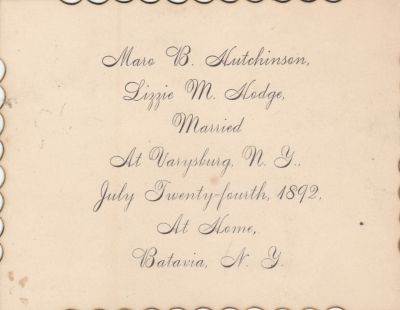 Maro B. Hutchinson,
Lizzie M. Hodge,
Married
At Varysburg, N. Y.,
July Twenty-fourth, 1892.
At Home,
Batavia, N. Y.